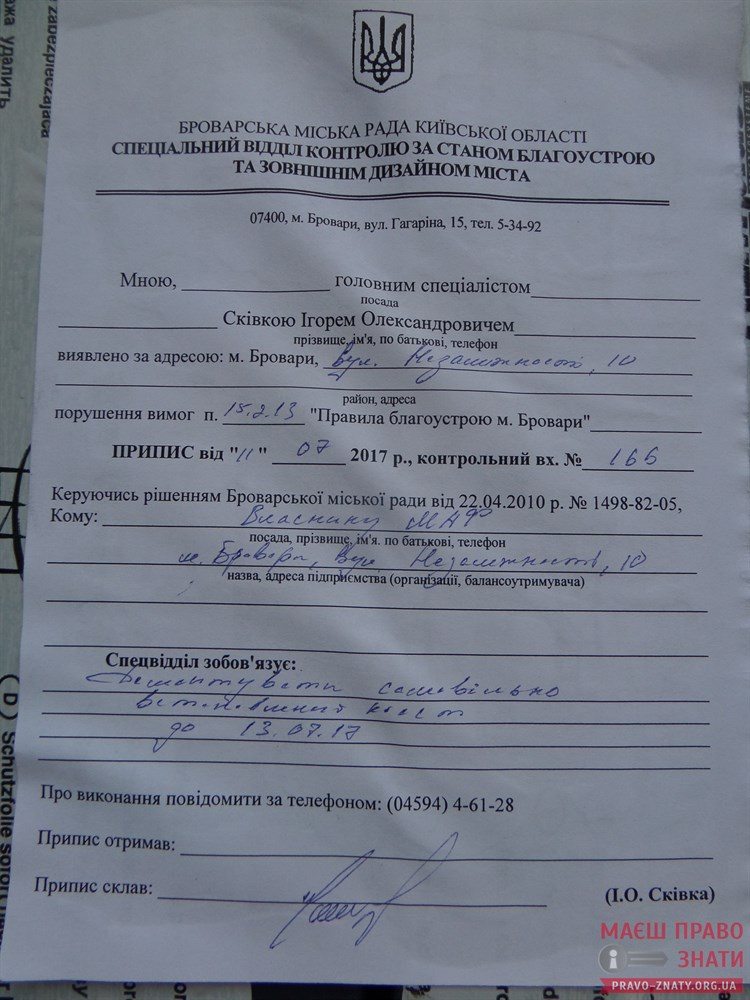 БРОВАРСЬКА МІСЬКА РАДА КИЇВСЬКОЇ ОБЛАСТІ
СПЕЦІАЛЬНИЙ ВІДДІЛ КОНТРОЛЮ ЗА СТАНОМ БЛАГОУСТРОЮ
ТА ЗОВНІШНІМ ДИЗАЙНОМ МІСТА
07400, м. Бровари, вул. Гагаріна, 15, тел. 5-34-92
Мною, головним спеціалістом
посада
Сківкою Ігорем Олександровичем
прізвище, ім'я, по батькові, телефон
виявлено за адресою: м. Бровари, вул. Незалежності, 10
район, адреса
порушення вимог п. 15.2.13 "Правила благоустрою м. Бровари"
ПРИПИС від "11" 07 2017 р., контрольний вх. № 166
Керуючись рішенням Броварської міської ради від 22.04.2010 р. № 1498-82-05,
Кому: Власнику МАФ
посада, прізвище, ім'я. по батькові, телефон
м. Бровари, вул. Незалежності, 10
назва, адреса підприємства (організації, балансоутримувача)
Спецвідділ зобов'язує:
Демонтувати самовільно
встановлений
до 13.07.17
Про виконання повідомити за телефоном: (04594) 4-61-28
Припис отримав:
Припис склав: (І.О. Сківка)
МАЄШ ПРАВО
ЗНАТИ
PRAVO-ZNATY.ORG.UA
удалить
zabezpieczająca
(D) Schutzfolie sofort